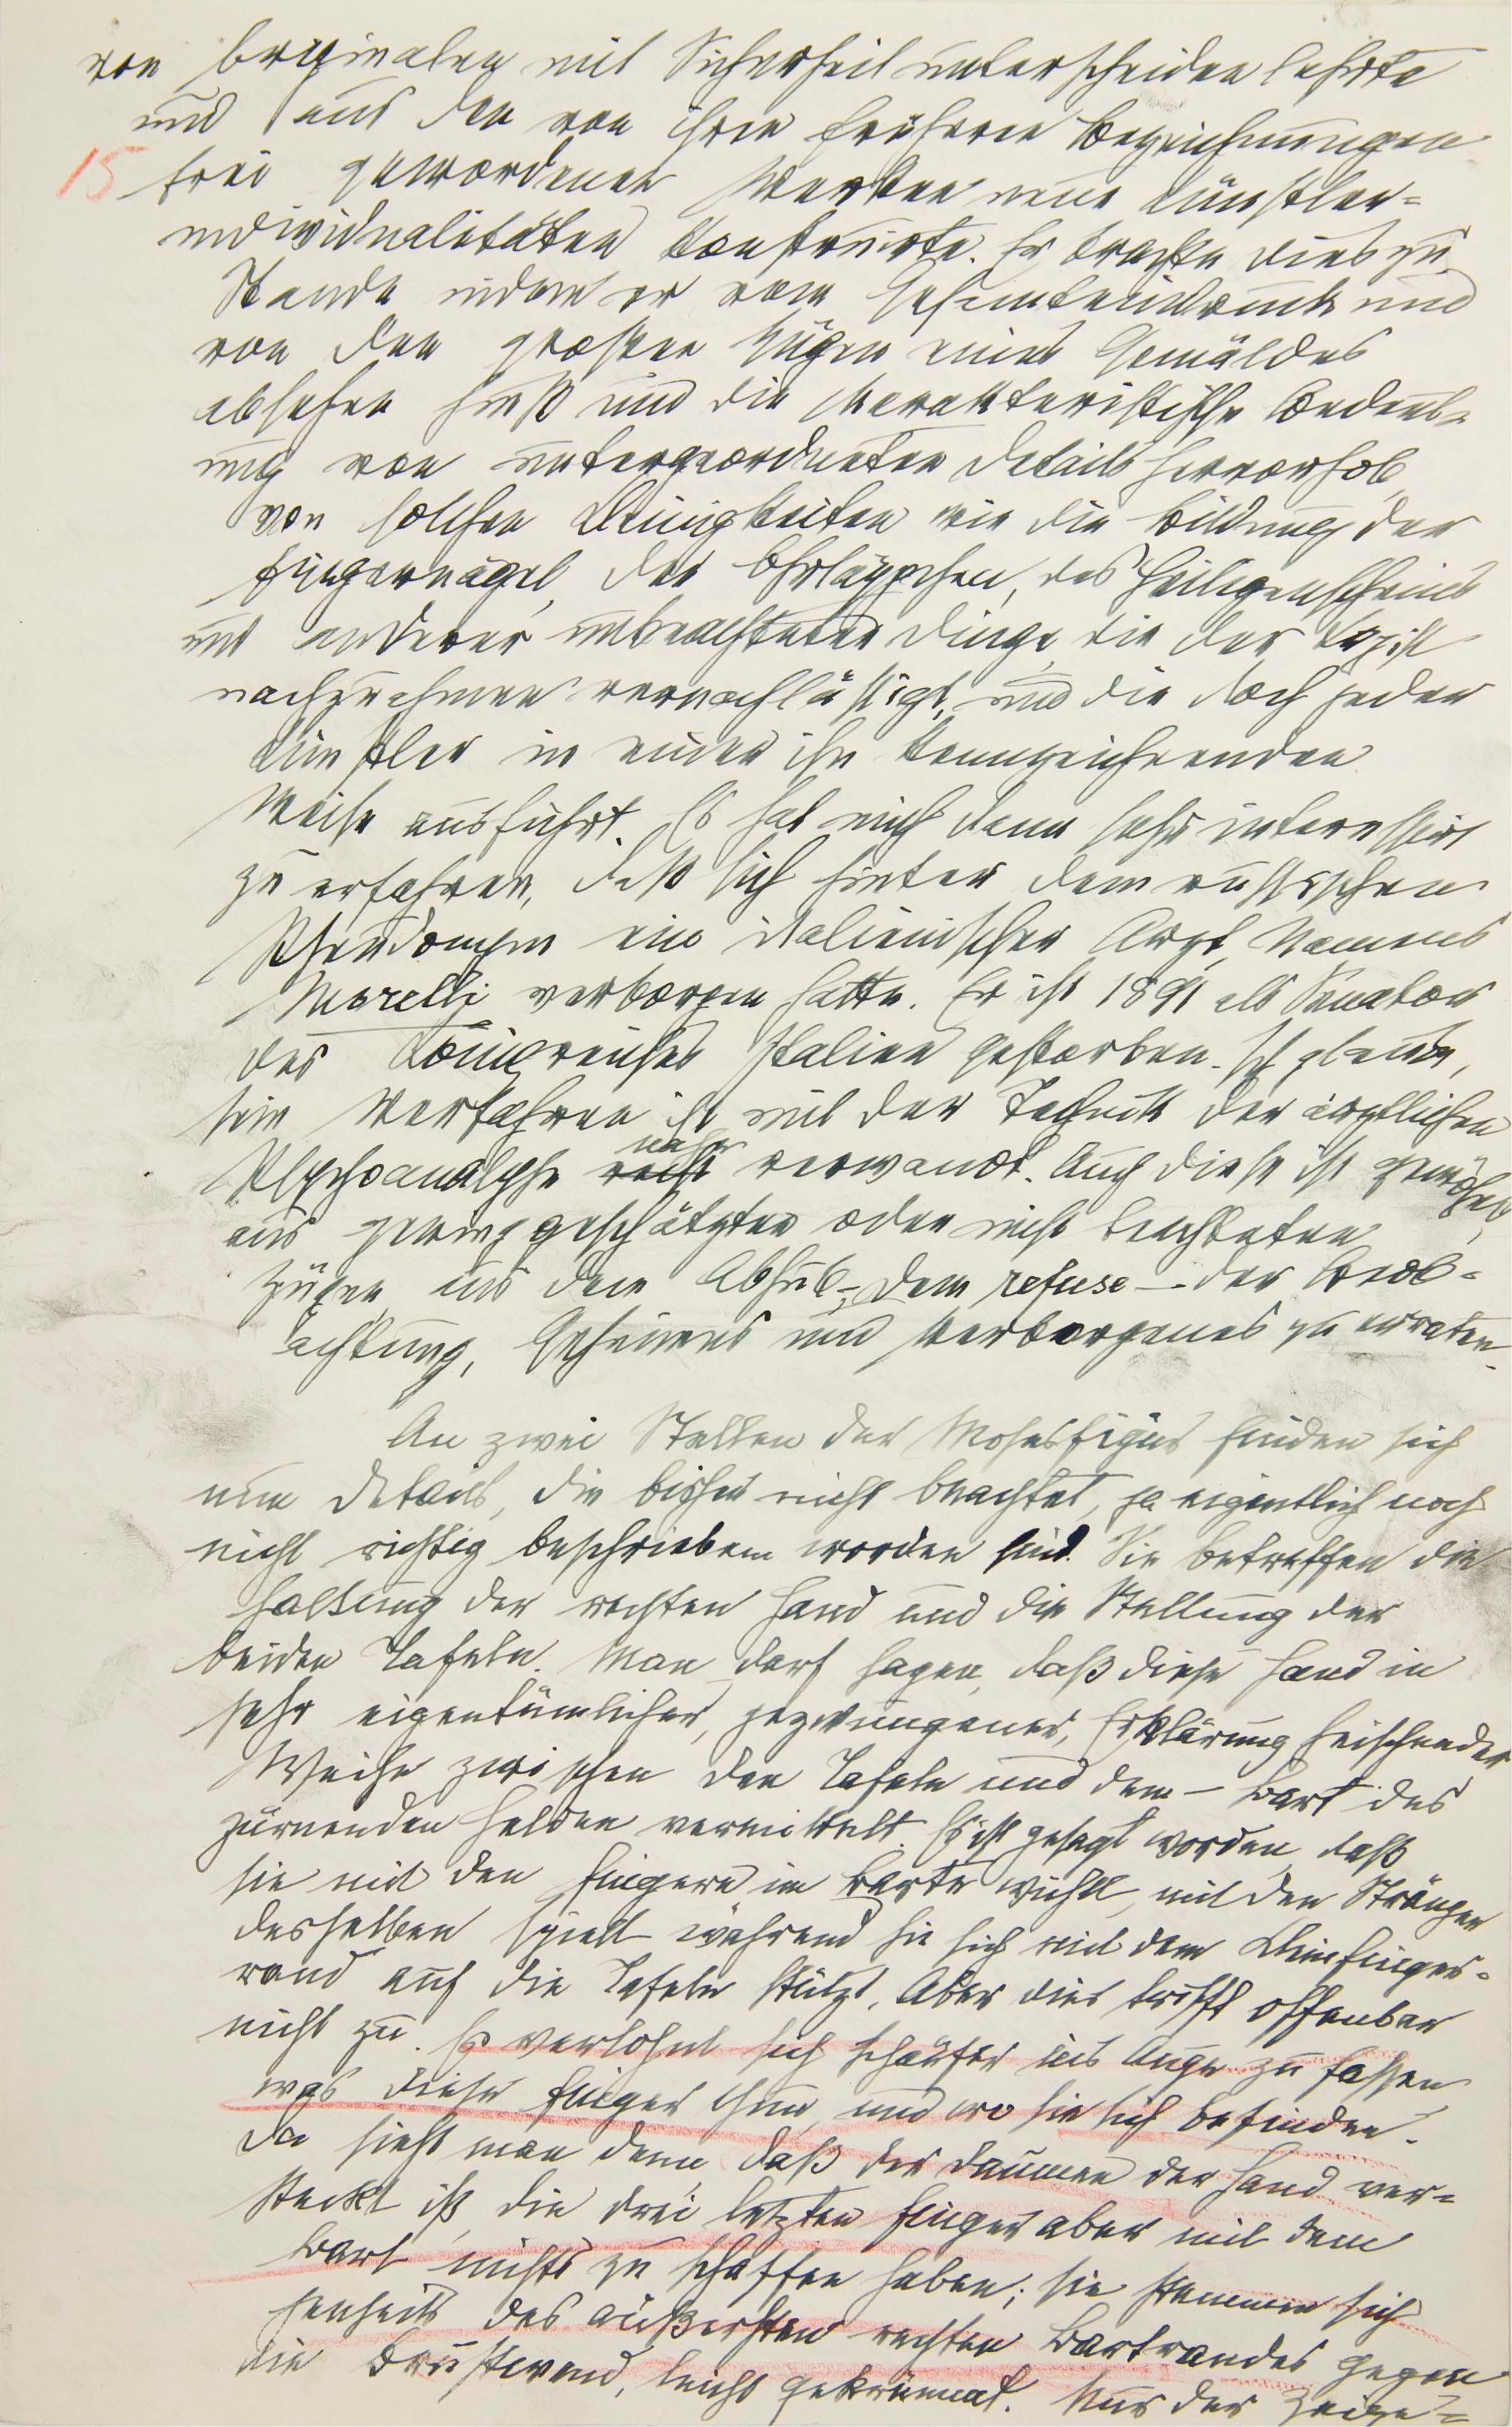 von Originalen mit Sicherheit unterscheiden lehrte
und aus den von ihren früheren Bezeichnungen
15 frei gewordenen Werken neue Künstler=
individualitäten konstruirte. Er brachte dies zu
Stande indem er vom Gesamteindruck und
von den großen Zügen eines Gemäldes
absehen hieß und die charakteristische Bedeut=
ung von untergeordneten Details hervorhob,
von solchen Kleinigkeiten wie die Bildung der
Fingernägel, der Ohrläppchen, des Heiligenscheines
und anderer unbeachteter Dinge, die der Kopist
nachzuahmen vernachlässigt, und die doch jeder
Künstler in einer ihn kennzeichnenden
Weise ausführt. Es hat mich dann sehr interessirt
zu erfahren, daß sich hinter dem russischen
Pseudonym ein italienischer Arzt, Namens
Morelli verborgen hatte. Er ist 1891 als Senator
des Königreiches Italien gestorben. Ich glaube,
sein Verfahren ist mit der Technik der ärztlichen
Psychoanalyse recht nahe verwandt. Auch diese ist gewöhnt,
aus geringgeschätzten oder nicht beachteten
Zügen, aus dem Abhub – dem refuse – der Beob=
achtung, Geheimes und Verborgenes zu erraten.
An zwei Stellen der Mosesfigur finden sich
nun Details, die bisher nicht beachtet, ja eigentlich noch
nicht richtig beschrieben worden sind. Sie betreffen die
Haltung der rechten Hand und die Stellung der
beiden Tafeln. Man darf sagen, daß diese Hand in
sehr eigentümlicher, gezwungener, Erklärung heischender
Weise zwischen den Tafeln und dem – Bart des
zürnenden Helden vermittelt. Es ist gesagt worden, daß
sie mit den Fingern im Barte wühlt, mit den Strängen
desselben spielt, während sie sich mit dem Kleinfinger=
rand auf die Tafeln stützt. Aber dies trifft offenbar
nicht zu. Es verlohnt sich schärfer ins Auge zu fassen
was diese Finger thun, und wo sie sich befinden.
Da sieht man denn, daß der Daumen der Hand ver=
steckt ist, die drei letzten Finger aber mit dem
Bart nichts zu schaffen haben; sie stemmen sich
jenseits des äußersten rechten Bartrandes gegen
die Brustwand, leicht gekrümmt. Nur der Zeige=